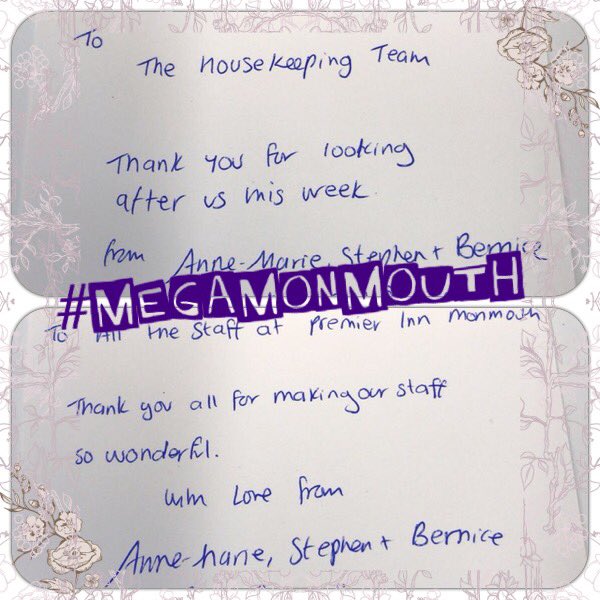 To
The Housekeeping Team
Thank you for looking
after us this week
from Anne-Marie, Stephen + Bernice
#MEGAMONMOUTH
To All the Staff at Premier Inn Monmouth
Thank you all for making our staff
so wonderful.
With Love from
Anne-Marie, Stephen + Bernice